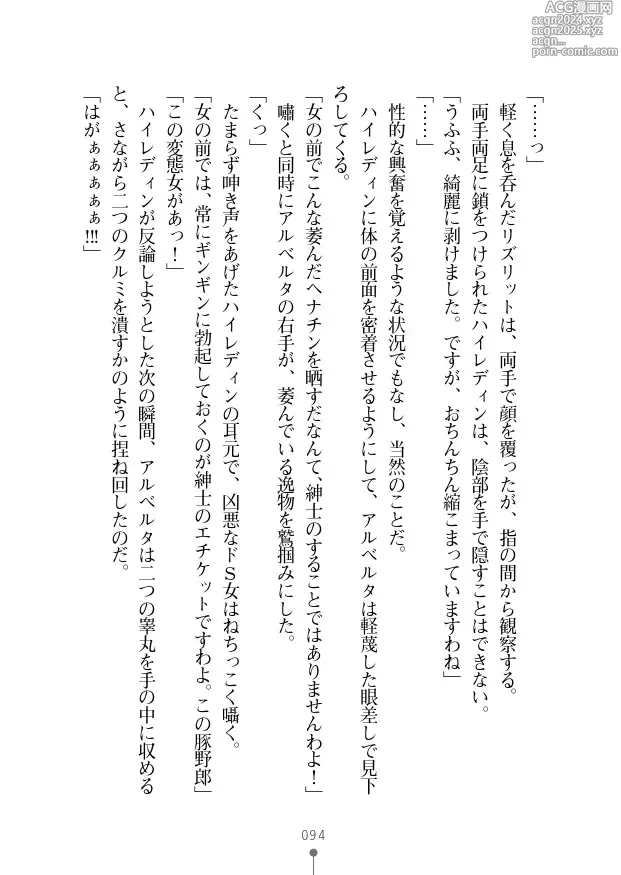 ACG漫画网
acgn2024.xyz
acgn2025.xyz
acgn...
porn-comic.com
「……っ」
　軽く息を呑んだリズリットは、両手で顔を覆ったが、指の間から観察する。
　両手両足に鎖をつけられたハイレディンは、陰部を手で隠すことはできない。
「うふふ、綺麗に剥けました。ですが、おちんちん縮こまっていますわね」
「……」
　性的な興奮を覚えるような状況でもなし、当然のことだ。
　ハイレディンに体の前面を密着させるようにして、アルベルタは軽蔑した眼差しで見下
ろしてくる。
「女の前でこんな萎んだヘナチンを晒すだなんて、紳士のすることではありませんわよ！」
　嘯くと同時にアルベルタの右手が、萎んでいる逸物を鷲掴みにした。
「くっ」
　たまらず呻き声をあげたハイレディンの耳元で、凶悪なドＳ女はねちっこく囁く。
「女の前では、常にギンギンに勃起しておくのが紳士のエチケットですわよ。この豚野郎」
「この変態女があっ！」
　ハイレディンが反論しようとした次の瞬間、アルベルタは二つの睾丸を手の中に収める
と、さながら二つのクルミを潰すかのように捏ね回したのだ。
「はがぁぁぁぁぁ!!!」
094